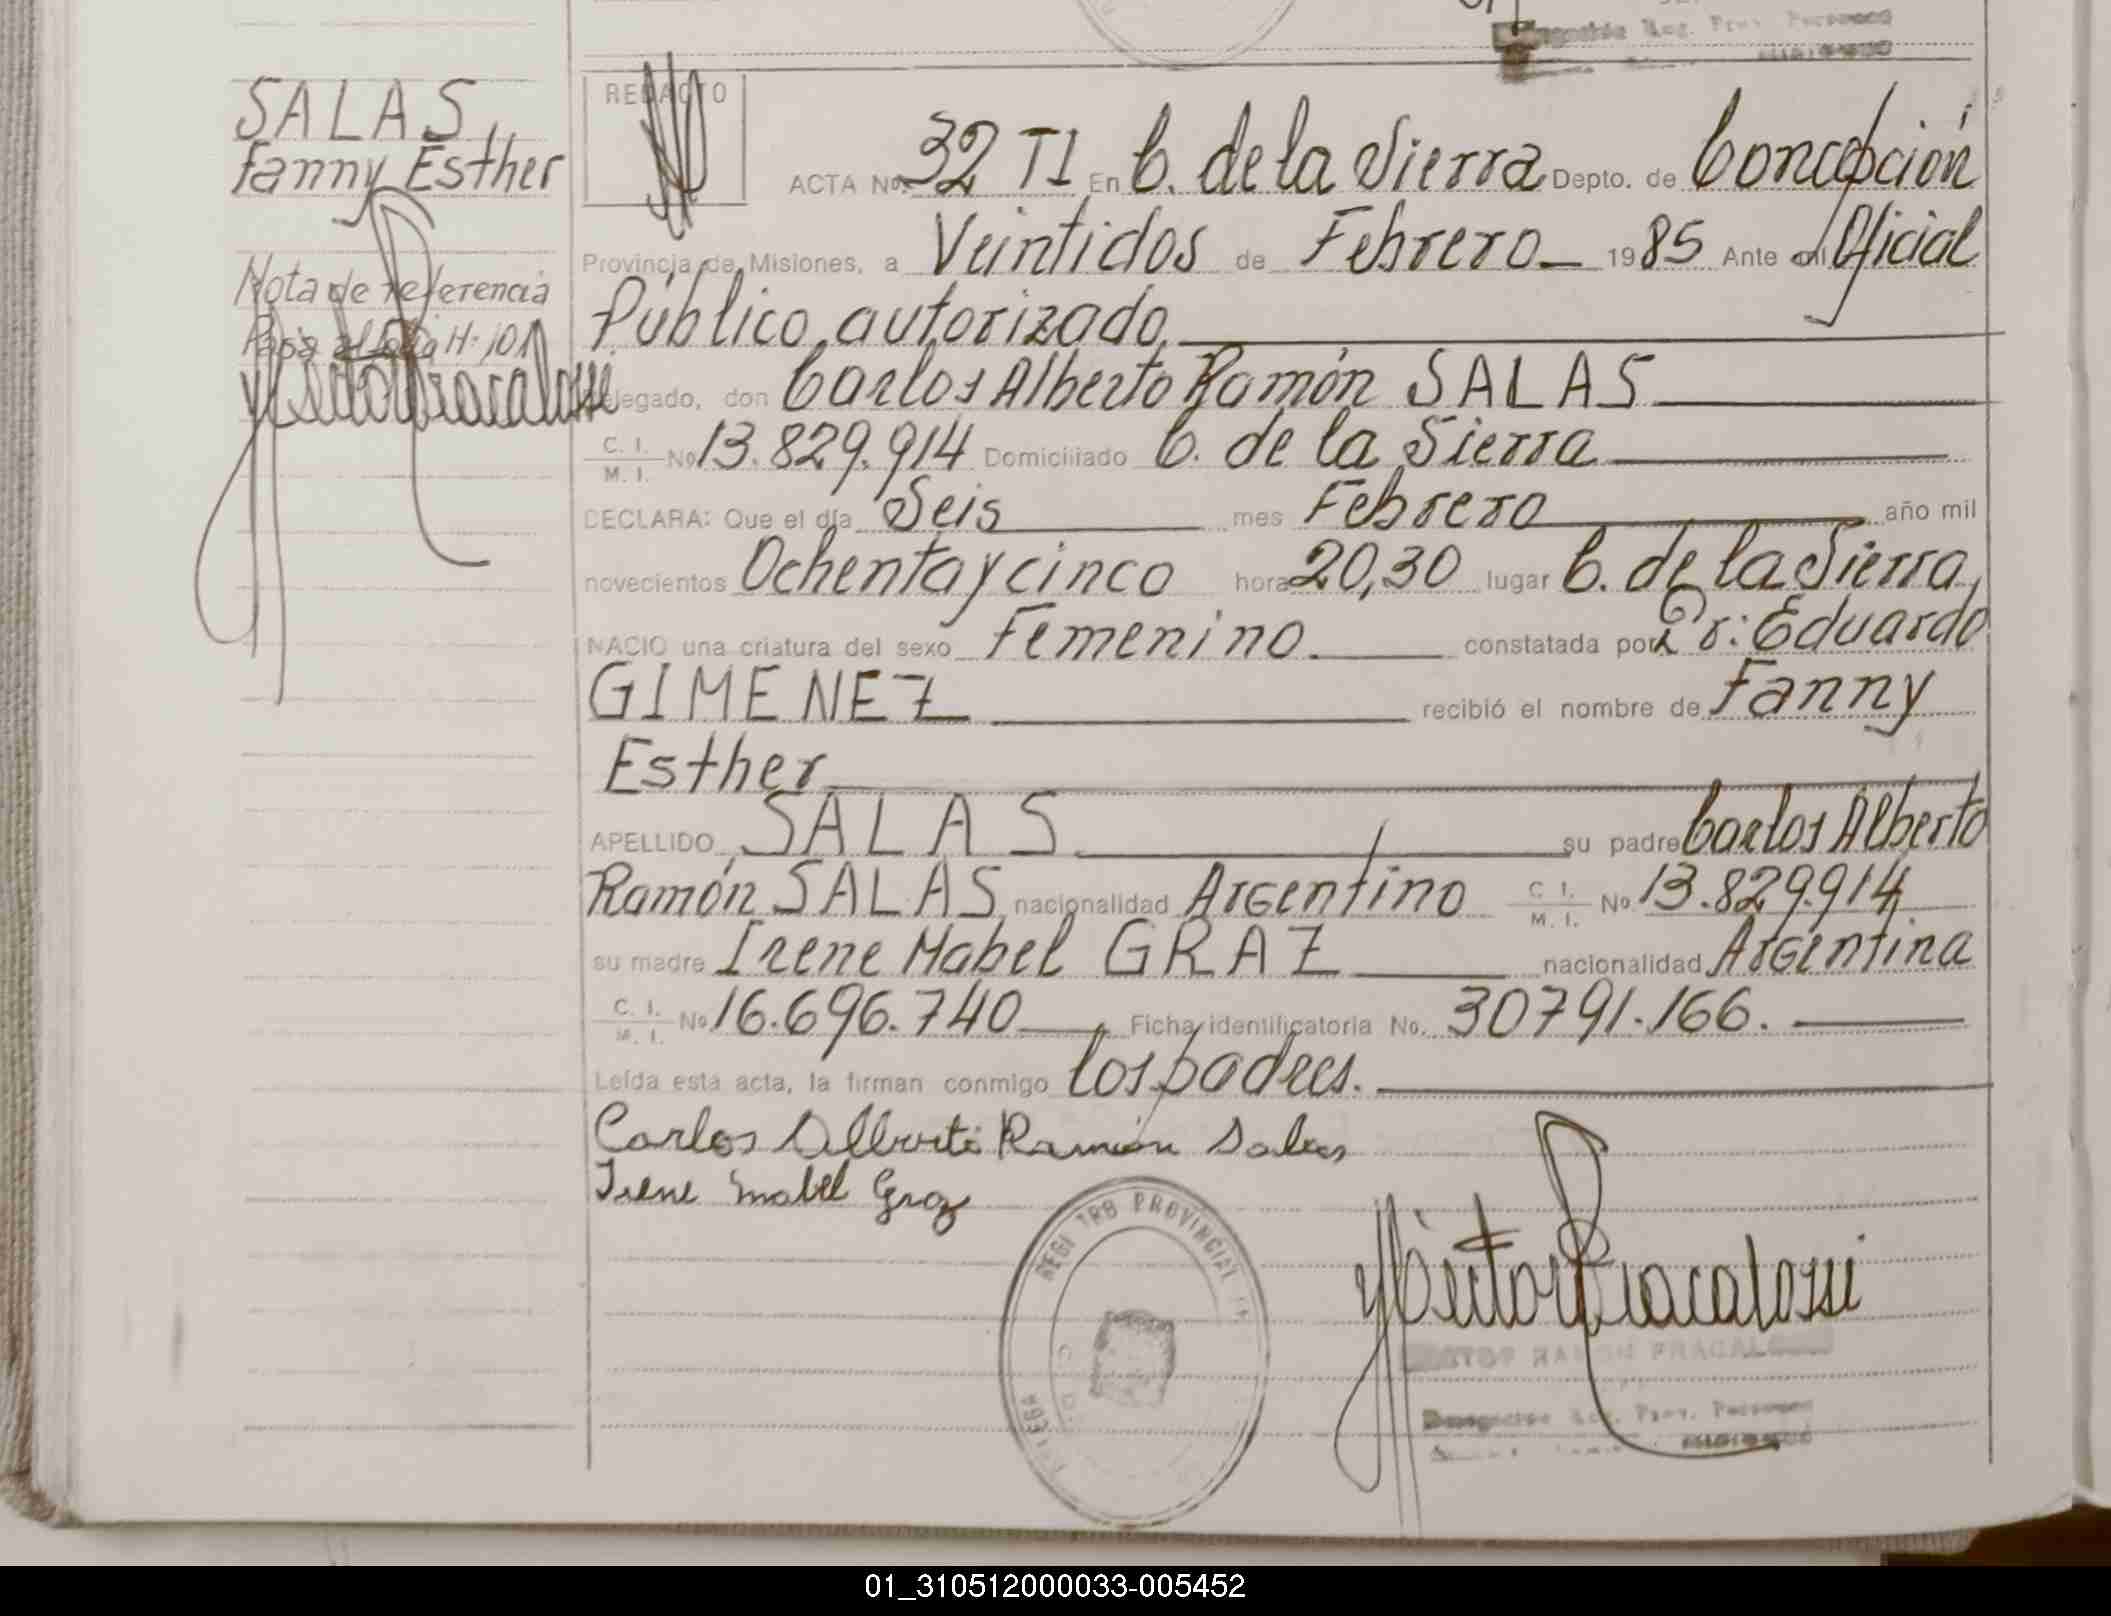 SALAS,
Fanny Esther
Nota de referencia
Pasa al folio Nº 101
REDACTO
ACTA No. 32 TI En C. de la Sierra Depto. de Concepción
Provincia de Misiones, a Veintidos de Febrero 1985 Ante mi Oficial
Público autorizado,
delegado, don Carlos Alberto Ramón SALAS
C. I. / M. I. No 13.829.914 Domiciliado C. de la Sierra
DECLARA: Que el día Seis mes Febrero año mil
novecientos Ochenta y cinco hora 20,30 lugar C. de la Sierra,
NACIO una criatura del sexo Femenino constatada por Dr: Eduardo
GIMENEZ recibió el nombre de Fanny
Esther
APELLIDO SALAS su padre Carlos Alberto
Ramón SALAS nacionalidad Argentino C. I. / M. I. No. 13.829.914
su madre Irene Mabel GRAZ nacionalidad Argentina
C. I. / M. I. No 16.696.740 Ficha identificatoria No. 30791.166.
Leída esta acta, la firman conmigo los padres.
Carlos Alberto Ramón Salas
Irene Mabel Graz
REGISTRO PROVINCIAL
Héctor Fracalossi
HECTOR RAMON FRACALOSSI
Reg. Prov. Personas
MISIONES
01_310512000033-005452